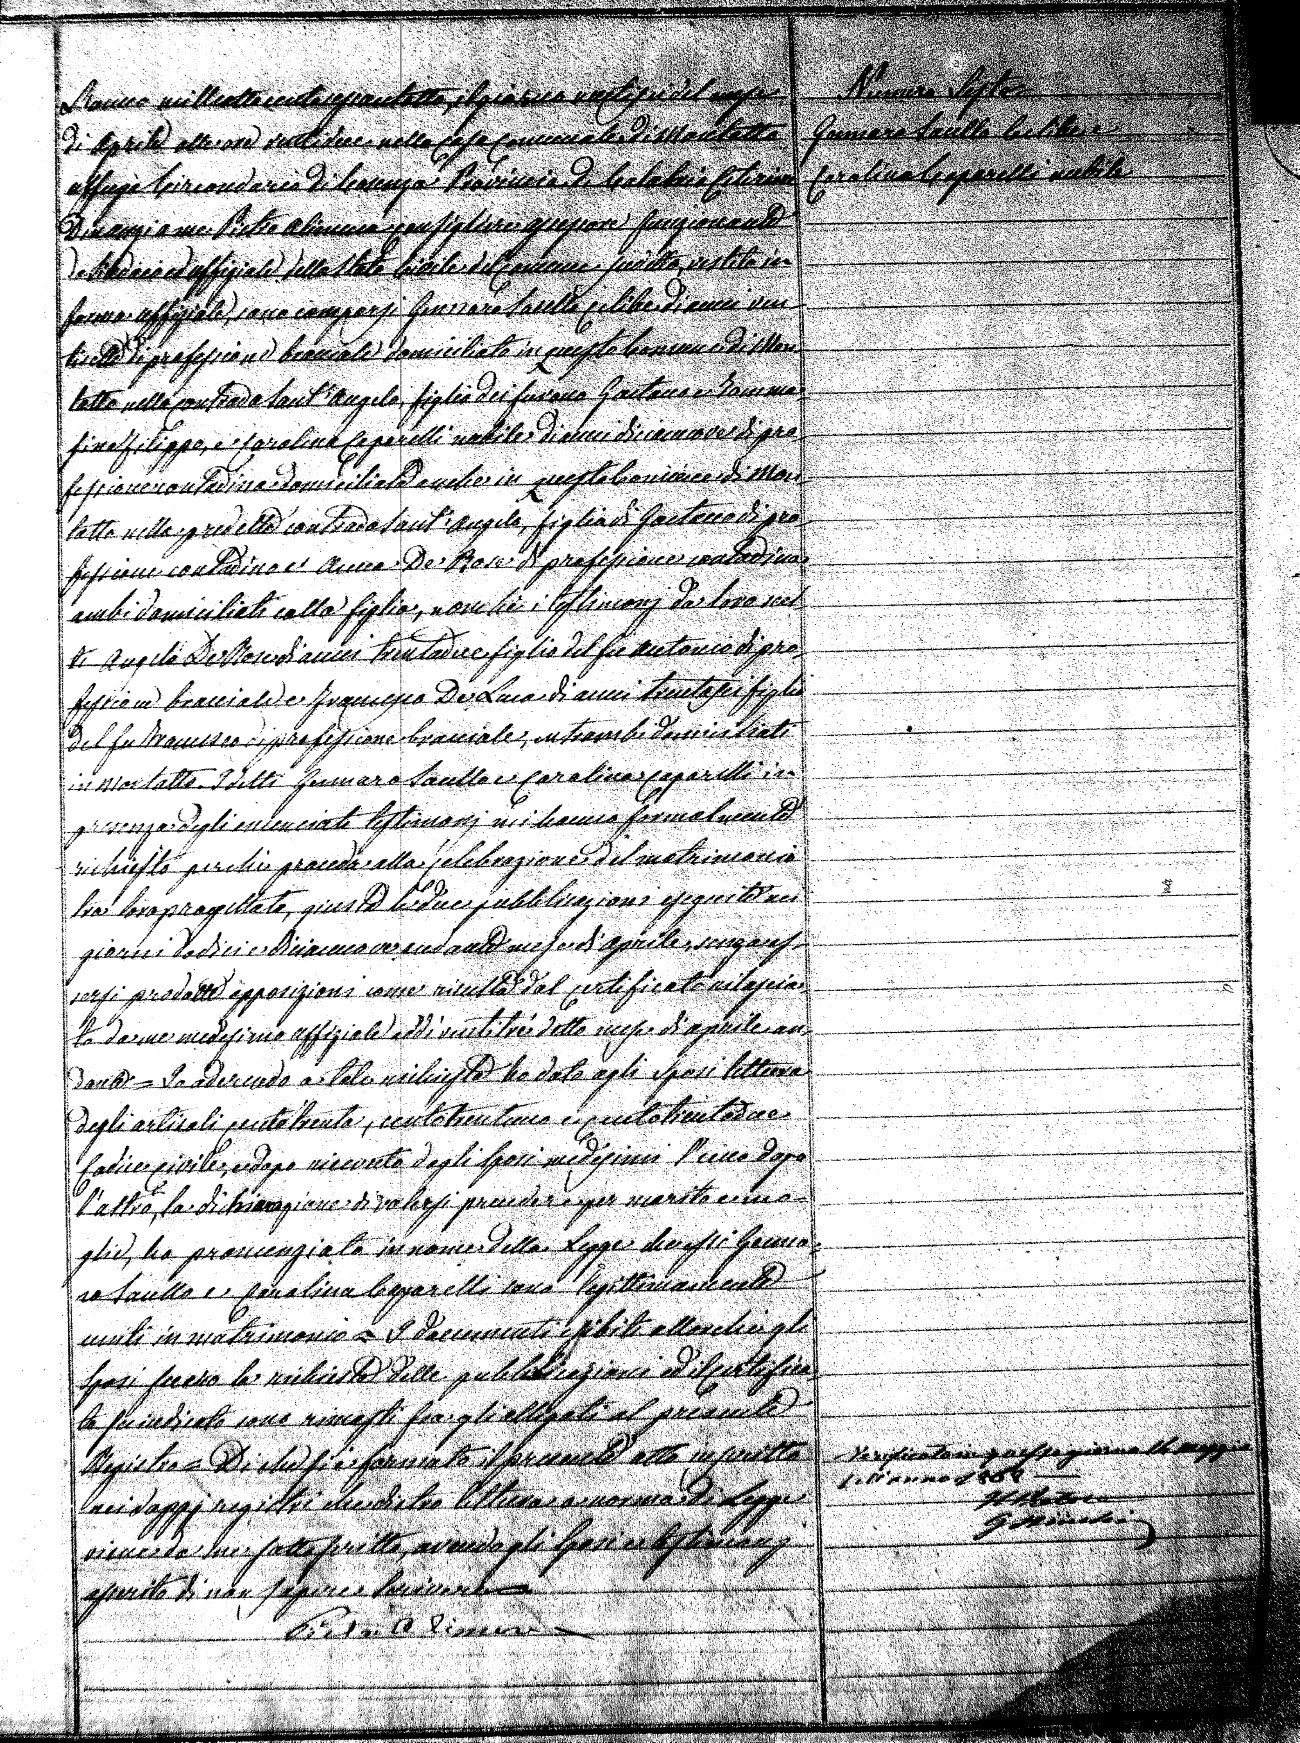 Numero Sesto
Gennaro Saullo celibe e
Carolina Caparelli nubile
L'anno mille otto cento sessantotto, il giorno ventisei del mese
di Aprile alle ore ventidue nella Casa Comunale di Montalto
Uffugo Circondario di Cosenza Provincia di Calabria Citeriore
Dinanzi a me Pietro Alimena Consigliere assessore funzionando
da Sindaco ed uffiziale dello Stato Civile del Comune suddetto, vestito in
forma uffiziale, sono comparsi Gennaro Saullo celibe di anni ven
di professione bracciale domiciliato in questo Comune di Mon
talto nella contrada Sant'Angelo, figlio dei furono Gaetano e Tomma
sina Filippo, e Carolina Caparelli nubile di anni diciannove di pro
fessione contadina domiciliata anche in questo Comune di Mon
talto nella predetta contrada Sant'Angelo, figlia di Gaetano di pro
fessione contadino e Anna De Rose di professione contadina
ambi domiciliati colla figlia, nonché i testimonj da loro scel
ti Angelo De Rose di anni trentadue figlio del fu Antonio di pro
fessione bracciale e Francesco De Luca di anni trentasei figlio
del fu Francesco di professione bracciale, entrambi domiciliati
in Montalto. I detti Gennaro Saullo e Carolina Caparelli in
presenza degli enunciati testimonj mi hanno formalmente
richiesto perché proceda alla celebrazione del matrimonio
tra loro progettato, giusta le due pubblicazioni eseguite nei
giorni dodici e diciannove andante mese di Aprile, senza es
sersi prodotte opposizioni come risulta dal certificato rilascia
to da me medesimo uffiziale addì ventitré detto mese di aprile an
dante = Io aderendo a tale richiesta ho dato agli sposi lettura
degli articoli centotrenta, centotrentuno e centotrentadue
Codice Civile, e dopo ricevuta dagli sposi medesimi l'uno dopo
l'altro, la dichiarazione di volersi prendere per marito e mo
glie, ho pronunziato in nome della Legge che essi Genna
ro Saullo e Carolina Caparelli sono legittimamente
uniti in matrimonio = I documenti esibiti allorché gli
sposi fecero la richiesta delle pubblicazioni ed il certifica
to suindicato sono rimasti fra gli allegati al presente
Registro = Di che si è formato il presente atto inscritto
nei doppj registri che dietro lettura a norma di Legge
viene da me sottoscritto, avendo gli sposi e testimonj
asserito di non sapere scrivere
Pietro Alimena
Verificato in questo giorno 16 maggio
dell'anno 1868